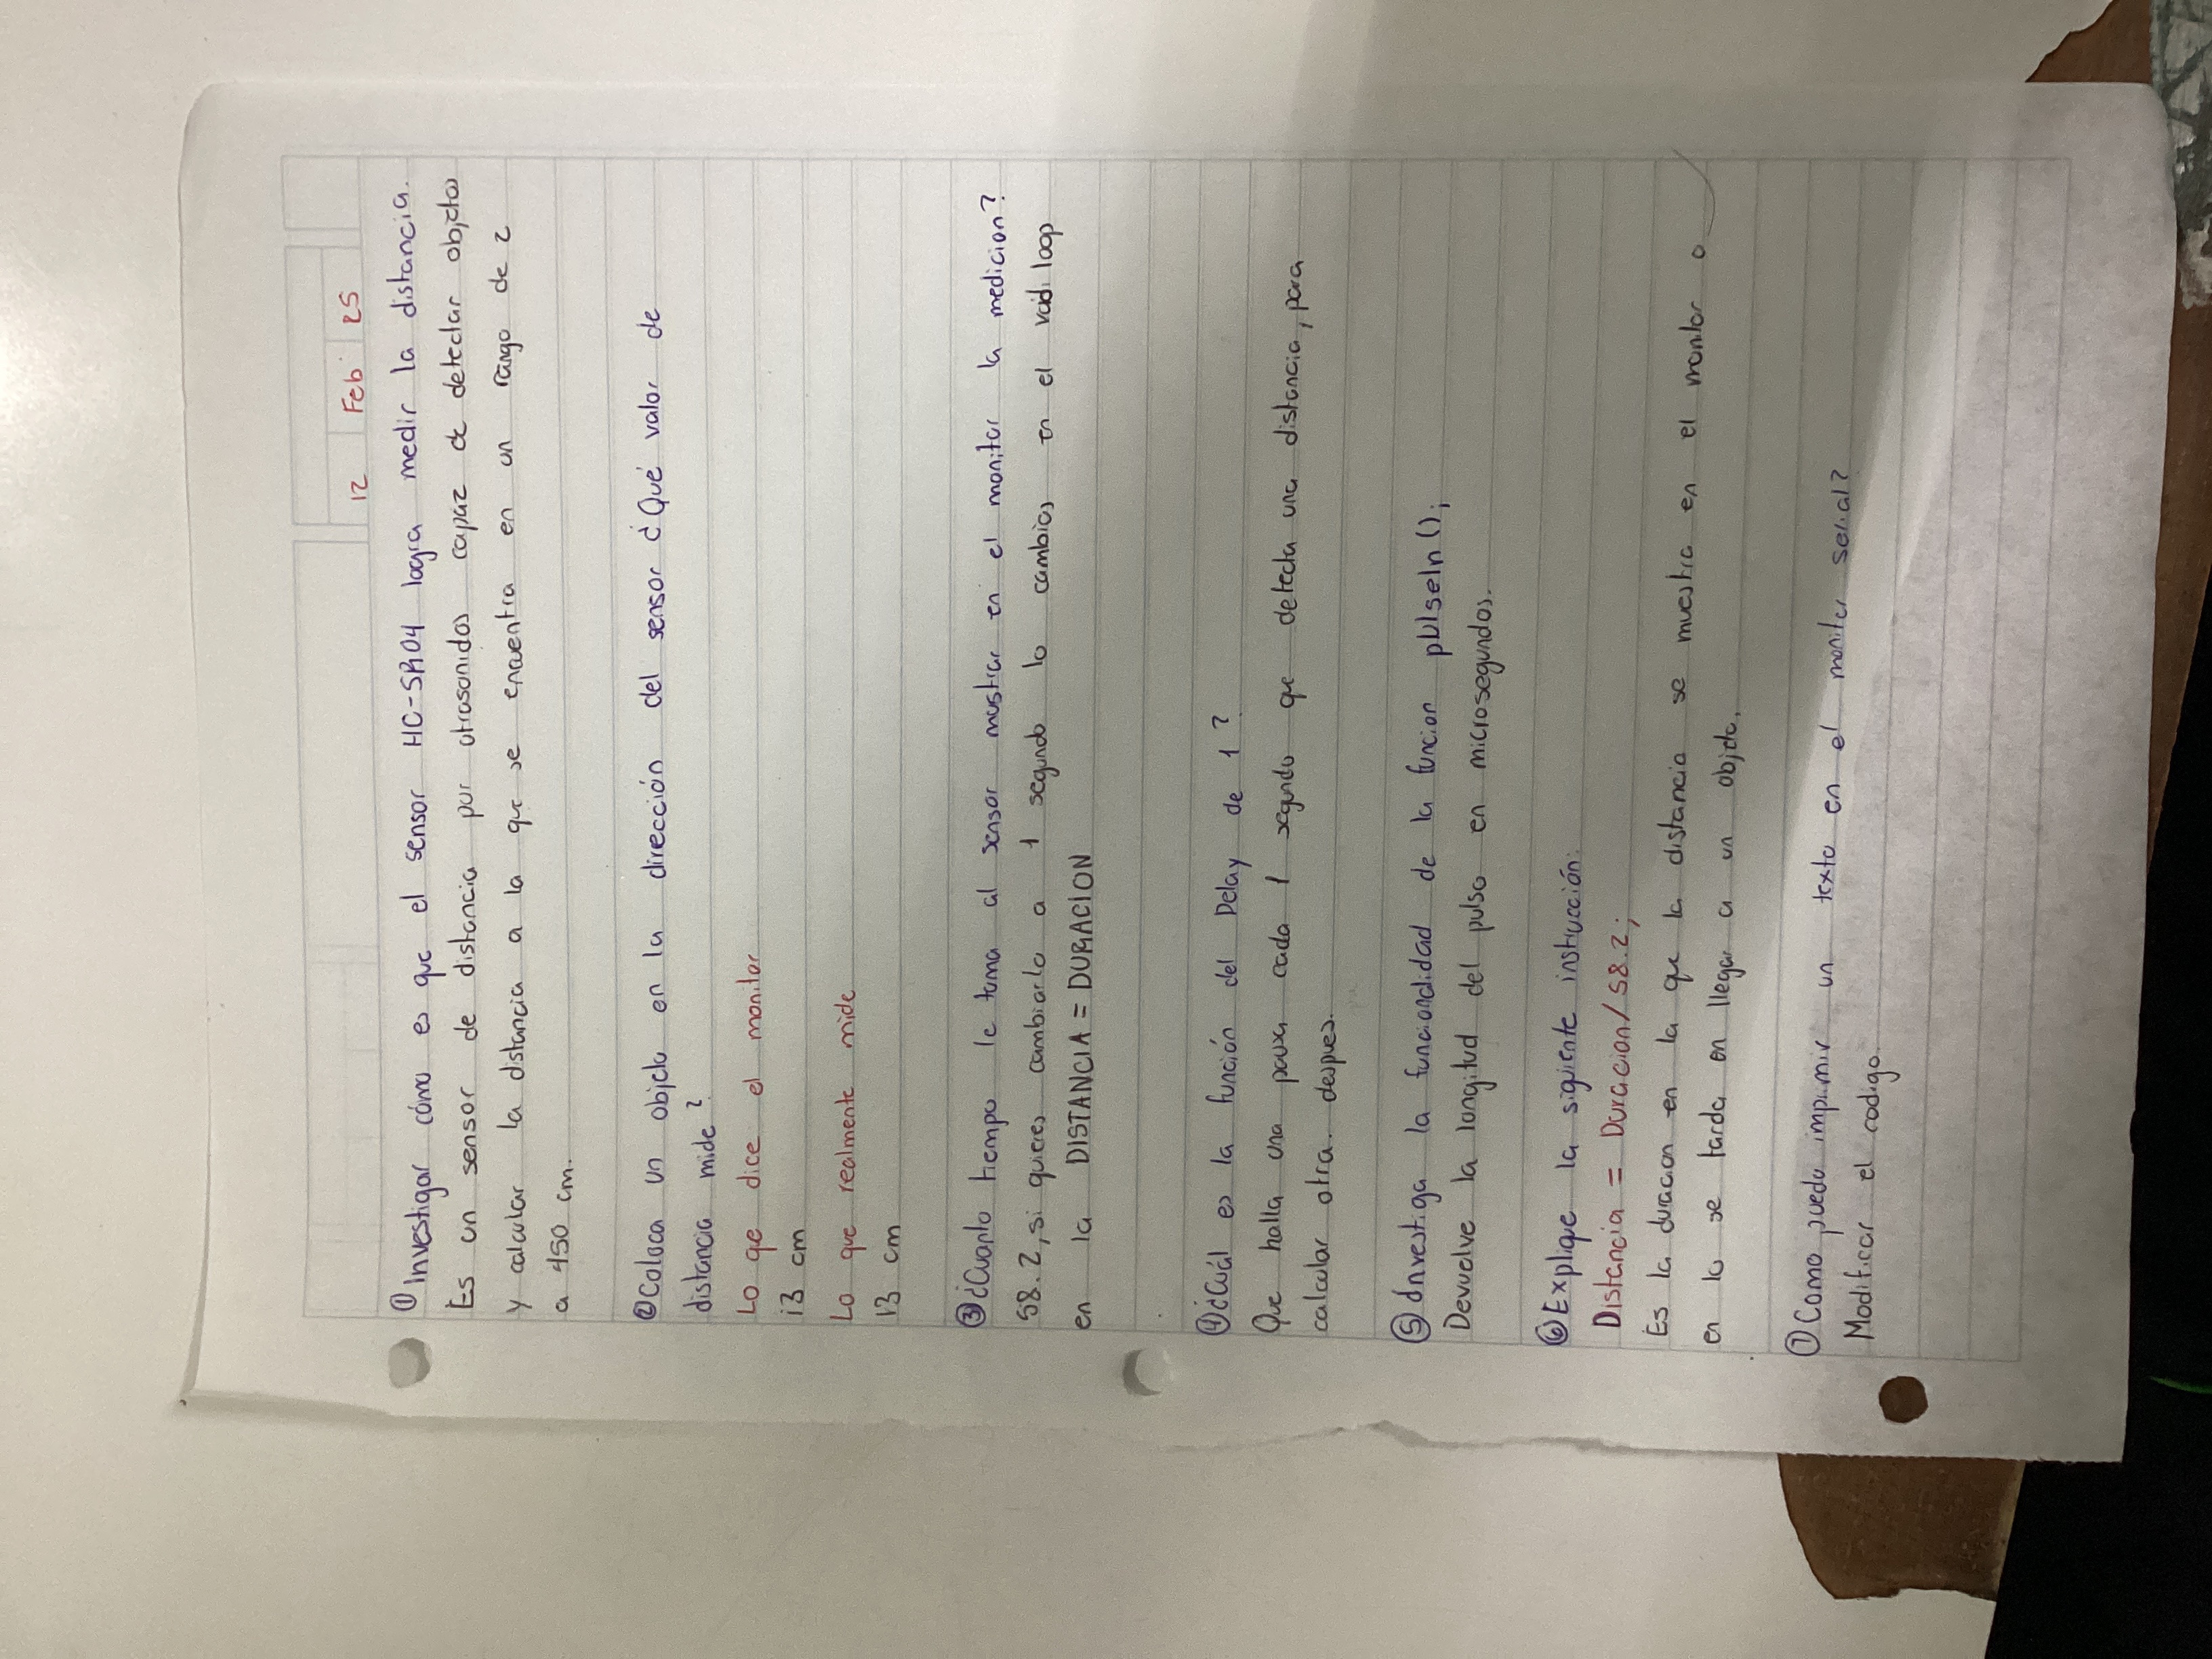 12 Feb 25
① Investigar cómo es que el sensor HC-SR04 logra medir la distancia.
Es un sensor de distancia por utrasonidos capaz de detectar objetos
y calcular la distancia a la que se encuentra en un rango de 2
a 450 cm.
② Coloca un objeto en la dirección del sensor ¿Qué valor de
distancia mide?
Lo que dice el monitor
13 cm
Lo que realmente mide
13 cm
③ ¿Cuanto tiempo le toma al sensor mostrar en el monitor la medicion?
58.2, si quieres cambiarlo a 1 segundo lo cambias en el void loop
en la DISTANCIA = DURACION
④ ¿Cuál es la función del Delay de 1?
Que halla una pausa cada 1 segundo que detecta una distancia, para
calcular otra despues.
⑤ Investiga la funcionalidad de la funcion pulseIn();
Devuelve la longitud del pulso en microsegundos.
⑥ Explique la siguiente instrucción:
Distancia = Duracion/58.2;
Es la duracion en la que la distancia se muestra en el monitor o
en lo se tarda en llegar a un objeto.
⑦ Como puedo imprimir un texto en el monitor serial?
Modificar el codigo.